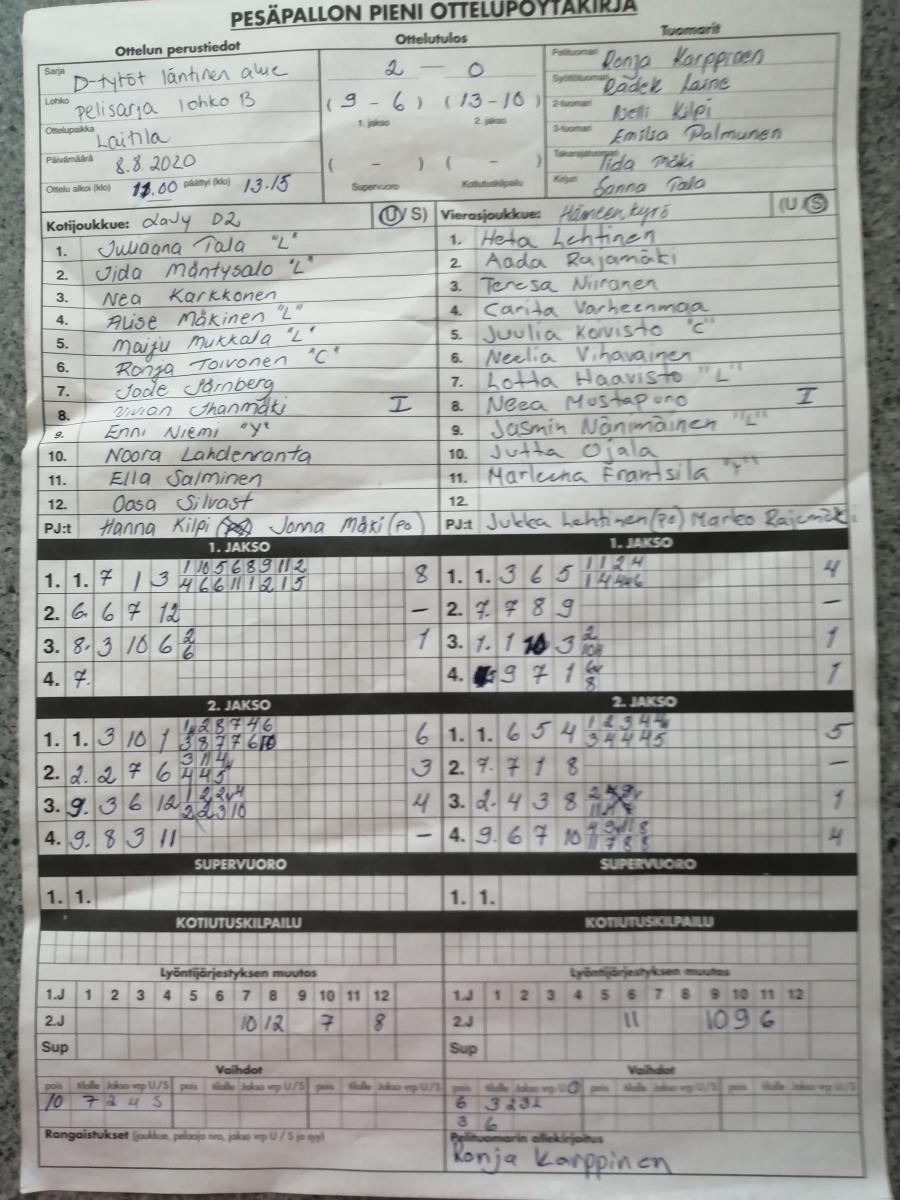 PESÄPALLON PIENI OTTELUPÖYTÄKIRJA
Ottelun perustiedot Ottelutulos Tuomarit
Sarja D-tytöt läntinen alue
2 — 0
Pelituomari Ronja Karppinen
Lohko pelisarja lohko B
(9 - 6) (13-10)
1. jakso 2. jakso
Syöttötuomari Radek Laine
2-tuomari Nelli Kilpi
Ottelupaikka Laitila
3-tuomari Emilia Palmunen
Päivämäärä 8.8.2020
( - ) ( - )
Takarajatuomari Iida Mäki
Ottelu alkoi (klo) 11.00 päättyi (klo) 13.15
Supervuoro Kotiutuskilpailu
Kirjuri Sanna Tala
Kotijoukkue: LaJy D2 (U/S) Vierasjoukkue: Hämeenkyrö (U/S)
1. Juliaana Tala "L" 1. Heta Lehtinen
2. Iida Mäntysalo "L" 2. Aada Rajamäki
3. Nea Karkkonen 3. Teresa Niiranen
4. Alise Mäkinen "L" 4. Carita Varheenmaa
5. Maiju Mukkala "L" 5. Juulia Koivisto "C"
6. Ronja Toivonen "C" 6. Neelia Vihavainen
7. Jade Järnberg 7. Lotta Haavisto "L"
8. Vivian Ihanmäki I 8. Neea Mustapuro I
9. Enni Niemi "Y" 9. Jasmin Nänimäinen "L"
10. Noora Lahdenranta 10. Jutta Ojala
11. Ella Salminen 11. Marleena Frantsila "Y"
12. Oosa Silvast 12.
PJ:t Hanna Kilpi Jonna Mäki (po) PJ:t Jukka Lehtinen (po) Marko Rajamäki
1. JAKSO 1. JAKSO
1. 1. 7 1 3 1 10 5 6 8 9 11 2 8 1. 1. 3 6 5 1 1 2 4 4
4 6 6 11 1 2 1 5
2. 6. 6 7 12 — 2. 7. 7 8 9 —
3. 8. 3 10 6 2 1 3. 1. 1 10 3 2 1
6
4. 7. 4. 9 7 1 1
8
2. JAKSO 2. JAKSO
1. 1. 3 10 1 1 2 8 7 4 6 6 1. 1. 6 5 4 1 2 3 4 4 5
3 8 7 7 6 10 3 4 4 4 5
2. 2. 2 7 6 3 11 4 3 2. 7. 7 1 8 —
4 4 5
3. 9. 3 6 12 1 2 2 4 4 3. 2. 4 3 8 1
2 2 3 10
4. 9. 8 3 11 — 4. 9. 6 7 10 4 9 11 8 4
11 7 8 8
SUPERVUORO SUPERVUORO
1. 1. 1. 1.
KOTIUTUSKILPAILU KOTIUTUSKILPAILU
Lyöntijärjestyksen muutos Lyöntijärjestyksen muutos
1.J 1 2 3 4 5 6 7 8 9 10 11 12 1.J 1 2 3 4 5 6 7 8 9 10 11 12
2.J 10 12 7 8 2.J 11 10 9 6
Sup Sup
Vaihdot Vaihdot
pois tilalle Jakso vrp U/S pois tilalle Jakso vrp U/S pois tilalle Jakso vrp U/S pois tilalle Jakso vrp U/S pois tilalle Jakso vrp U/S pois tilalle Jakso vrp U/S
10 7 2 4 S 6 3 2 3
3 6
Rangaistukset (joukkue, pelaaja nro, jakso vrp U / S ja syy) Pelituomarin allekirjoitus
Ronja Karppinen